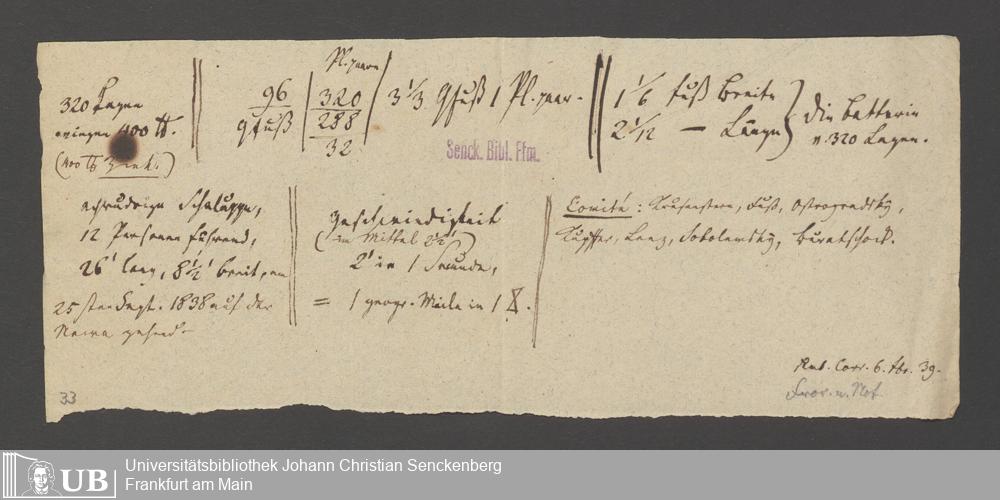 320 Lagen
wiegen 400 ℔.
(400 ℔ Zink.)
96
9 Fuß
Pl.paare
320
288
32
3 1/3 QFuß 1 Pl.paar.
1 1/6 Fuß Breite
2 1/12 — Länge
die Batterie
v. 320 Lagen.
Senck. Bibl. Ffm.
achtrudrige Schaluppe,
12 Personen führend,
26' lang, 8 1/2' breit, am
25sten Sept. 1838 auf der
Newa gehend.
Geschwindigkeit
(im Mittel 2 1/2')
2' in 1 Secunde,
= 1 geogr. Meile in 1
Comité: Krusenstern, Fuß, Ostrogradsky,
Kupffer, Lenz, Sobolewsky, Buratschock.
Corr. 6. 39.
33
Fror. n. Not.
UB
Universitätsbibliothek Johann Christian Senckenberg
Frankfurt am Main